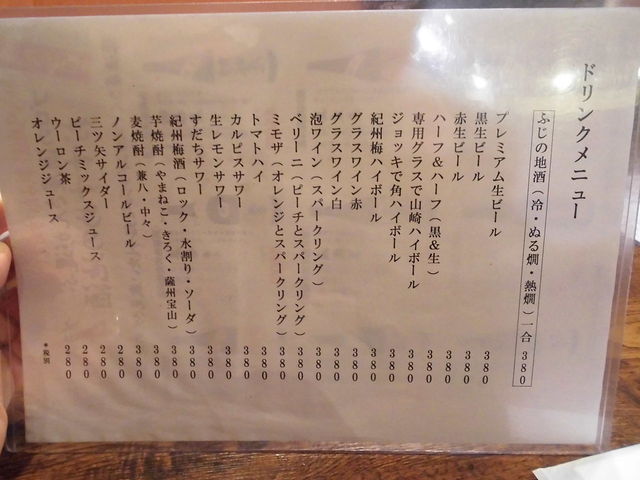 ドリンクメニュー
ふじの地酒（冷・ぬる燗・熱燗）一合 380
プレミアム生ビール 380
黒生ビール 380
赤生ビール 380
ハーフ＆ハーフ（黒＆生） 380
専用グラスで山崎ハイボール 380
ジョッキで角ハイボール 380
紀州梅ハイボール 380
グラスワイン赤 380
グラスワイン白 380
泡ワイン（スパークリング） 380
ベリーニ（ピーチとスパークリング） 380
ミモザ（オレンジとスパークリング） 380
トマトハイ 380
カルピスサワー 380
生レモンサワー 380
すだちサワー 380
紀州梅酒（ロック・水割り・ソーダ） 380
芋焼酎（やまねこ・きろく・薩州宝山） 380
麦焼酎（兼八・中々） 380
ノンアルコールビール 280
三ツ矢サイダー 280
ピーチミックスジュース 280
ウーロン茶 280
オレンジジュース
＊税別